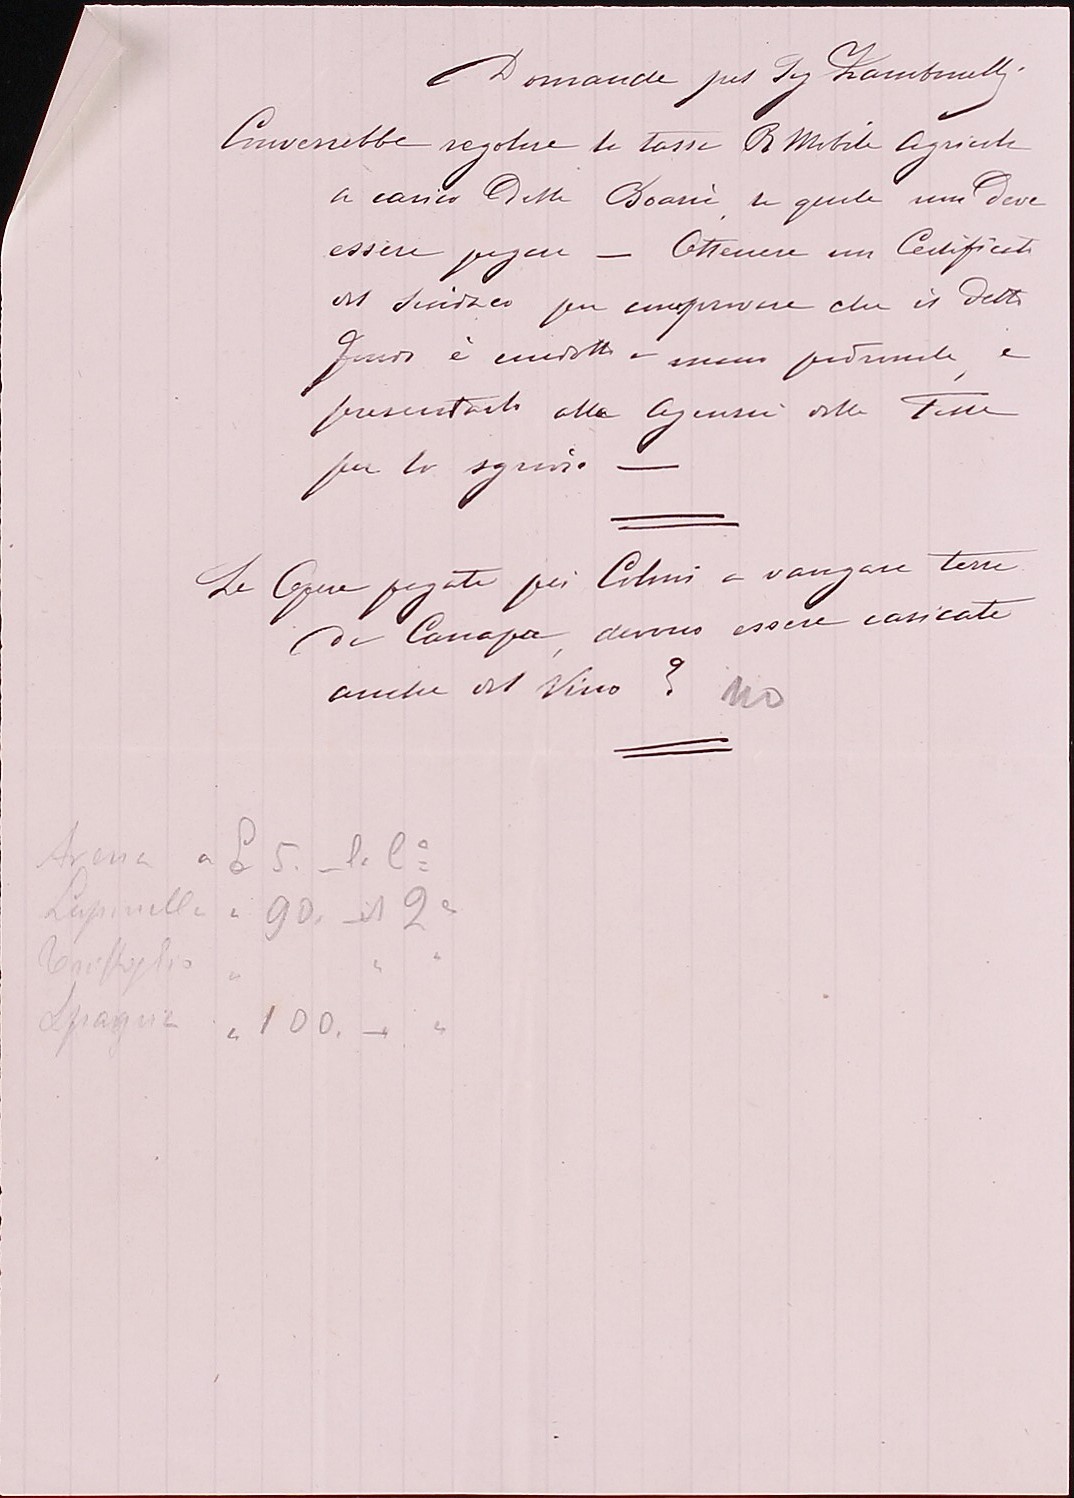 Domande pel Sig Zambonelli
Converrebbe regolare la tassa R Mobile Agricola
a carico della Boaria, la quale non deve
essere pagare — Ottenere un Certificato
del Sindaco per comprovare che il detto
fondo è condotto a mano padronale, e
presentarlo alla Agenzia delle Tasse
per lo sgravio —
Le Opere pagate pei Coloni a vangare terre
da Canapa, devono essere caricate
anche del Vino ? No
Avena a £ 5. la C.a
Lupinella " 90. il Q.e
Trifoglio " " "
Spagna " 100. — "